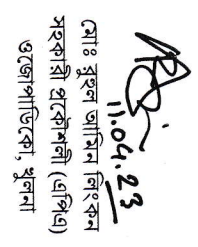 11.04.23
মোঃ রুহুল আমিন লিংকন
সহকারী প্রকৌশলী (এপিএ)
ওজোপাডিকো, খুলনা